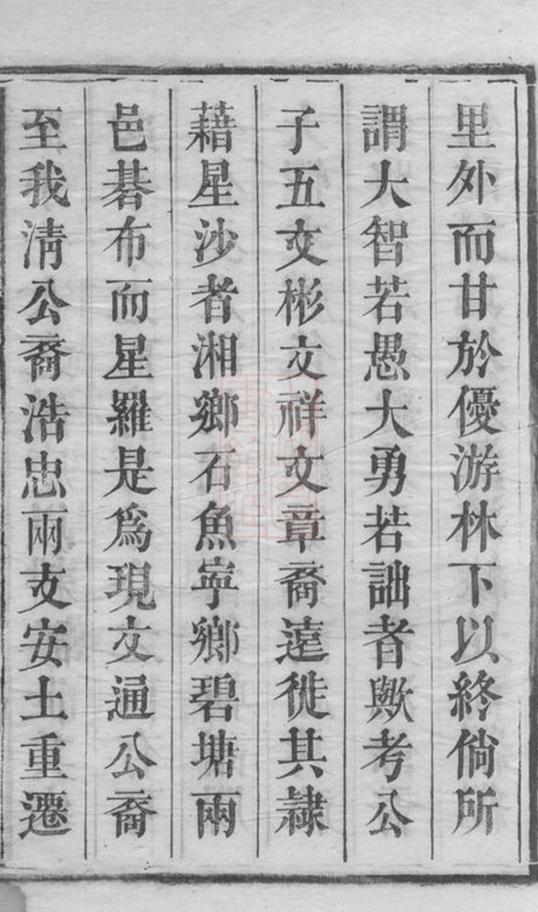 里外而甘於優游林下以終倘所
謂大智若愚大勇若詘者歟考公
子五文彬文祥文章裔遠徙其隸
藉星沙者湘鄉石魚寧鄉碧塘兩
邑碁布而星羅是為現文通公裔
至我淸公裔浩忠兩支安土重遷